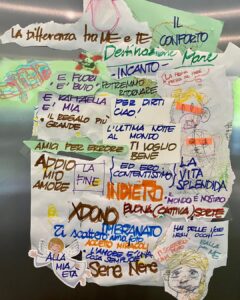 LA DIFFERENZA tra ME e TE
IL CONFORTO
Destinazione Mare
INCANTO
E FUORI
E' BUIO
POTREMO
RITORNARE
E RAFFAELLA
E' MIA
PER DIRTI
CIAO!
IL REGALO PIÙ
GRANDE
L'ULTIMA NOTTE AL
MONDO
AMICI PER ERRORE
TI VOGLIO
BENE
ADDIO
MIO
AMORE
LA
FINE
ED ERO
CONTENTISSIMO
LA
VITA
SPLENDIDA
INDIETRO
IL MONDO È NOSTRO
XDONO
BUONA (CATTIVA) SORTE
IMBRANATO
Ti scatterò una foto
ACCETTO MIRACOLI
L'AMORE È UNA
COSA SEMPLICE
HAI DELLE ISOLE
NEGLI OCCHI
ALLA
MIA
ETÀ
Sere Nere